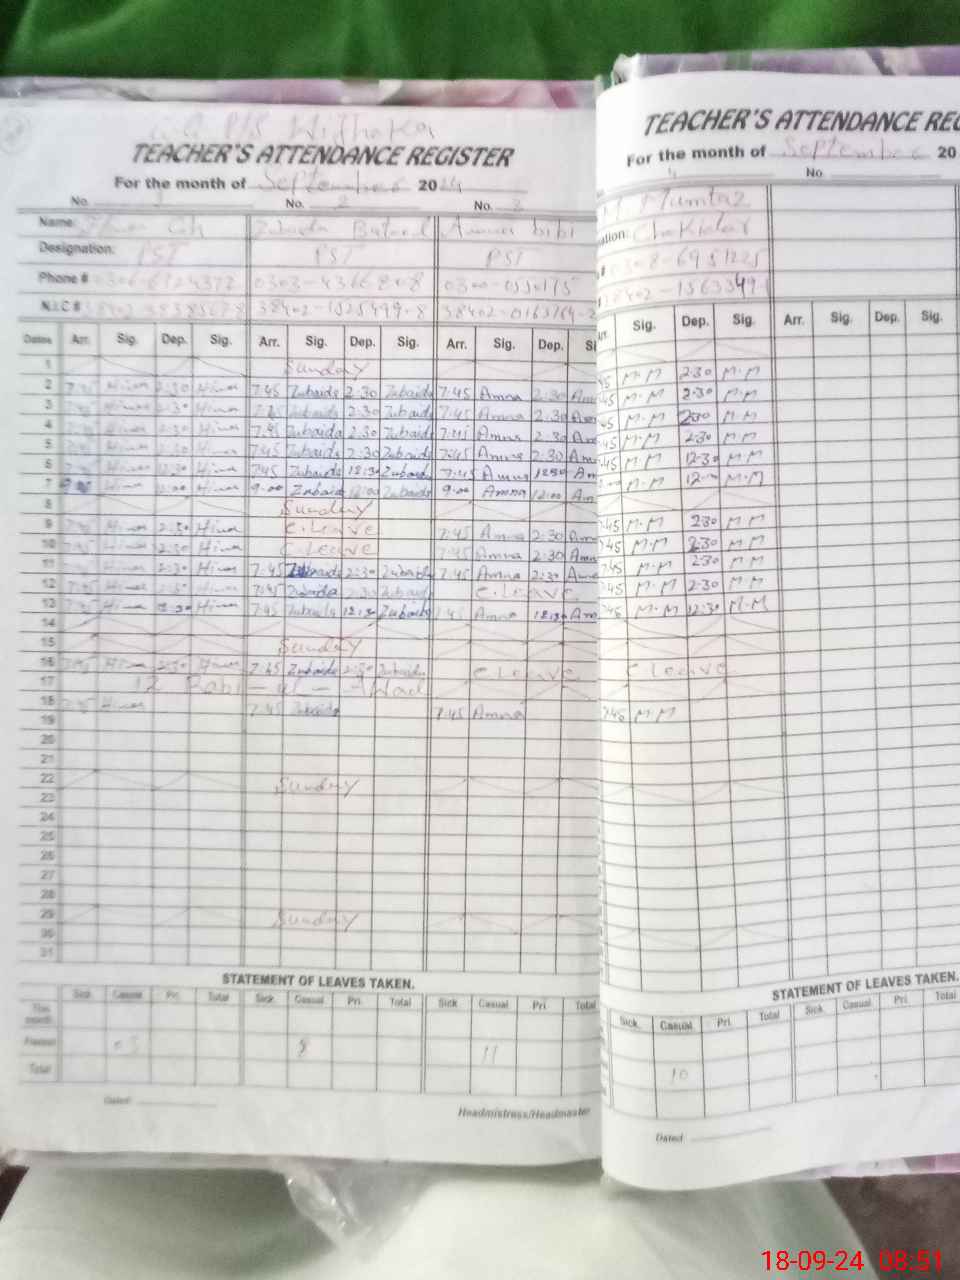 TEACHER'S ATTENDANCE REGISTER
For the month of September 2024
No. 1 No. 2 No. 3
Name: Zubaida Amna bibi
Designation: PST PST PST
Phone # 0303-4366808
N.I.C #
Dates Arr. Sig. Dep. Sig. Arr. Sig. Dep. Sig. Arr. Sig. Dep.
1 Sunday
2 7:45 Hina 2:30 Hina 7:45 Zubaida 2:30 Zubaida 7:45 Amna 2:30
3 7:45 Hina 2:30 Hina 7:45 Zubaida 2:30 Zubaida 7:45 Amna 2:30
4 Hina 7:45 Zubaida 2:30 Zubaida 7:45 Amna 2:30
5 Hina 7:45 Zubaida 2:30 Zubaida 7:45 Amna 2:30
6 Hina 12:30 Hina 7:45 Zubaida 12:30 Zubaida 7:45 Amna 12:30
7 Hina 12:00 Hina 9:00 Zubaida 12:00 Zubaida 9:00 Amna 12:00
8 Sunday
9 Hina 2:30 Hina C.Leave 7:45 Amna 2:30
10 Hina 2:30 Hina C.Leave 7:45 Amna 2:30
11 Hina 2:30 Hina 7:45 Zubaida 2:30 Zubaida 7:45 Amna 2:30
12 Hina 2:30 Hina 7:45 Zubaida 2:30 Zubaida C.Leave
13 Hina 12:30 Hina 7:45 Zubaida 12:30 Zubaida 7:45 Amna 12:30
14
15 Sunday
16 Hina 2:30 Hina 7:45 Zubaida 2:30 Zubaida C Leave
17 12 Rabi-ul-Awal
18 7:45 Hina 7:45 Zubaida 7:45 Amna
19
20
21
22 Sunday
23
24
25
26
27
28
29 Sunday
30
31
STATEMENT OF LEAVES TAKEN.
Sick Casual Pri. Total Sick. Casual Pri. Total Sick. Casual. Pri. Total
This month
8 11
Total
Dated
Headmistress/Headmaster
TEACHER'S ATTENDANCE
For the month of September 20
4 No.
Mumtaz
0308-6951225
Sig. Dep. Sig. Arr. Sig. Dep. Sig.
M.M 2:30 M.M
M.M 2:30 M.M
M.M 2:30 M.M
M.M 2:30 M.M
M.M 12:30 M.M
M.M M.M
M.M 2:30 M.M
M.M 2:30 M.M
M.M 2:30 M.M
M.M 2:30 M.M
M.M 12:30 M.M
C Leave
7:45 M.M
STATEMENT OF LEAVES TAKEN.
Sick. Casual. Pri. Total Sick. Casual. Pri. Total
10
Dated
18-09-24 08:51